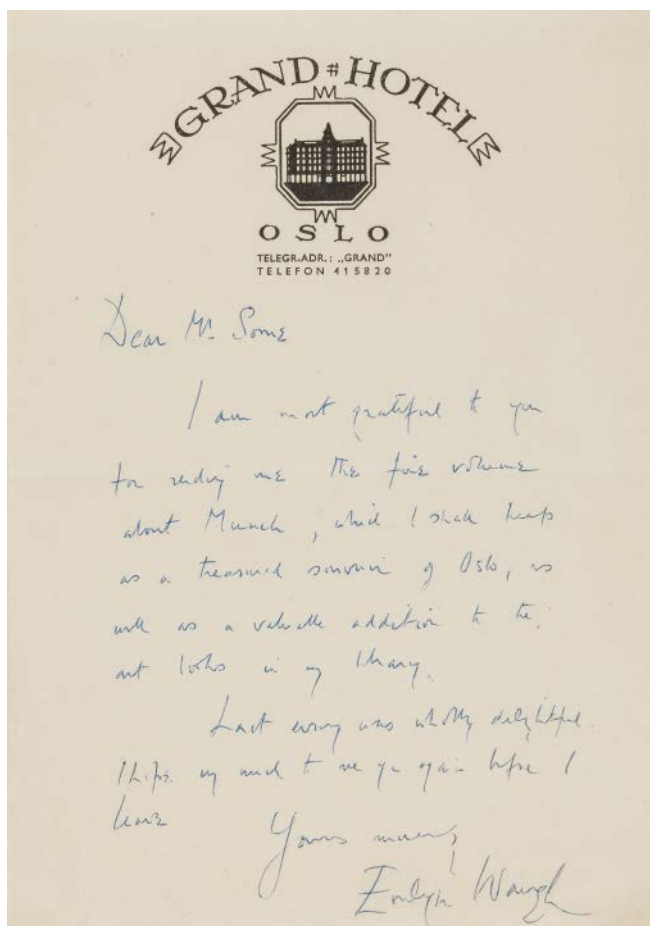 GRAND # HOTEL
OSLO
TELEGR.ADR.: „GRAND"
TELEFON 415820
Dear Mr. Some
I am most grateful to you
for sending me the fine volume
about Munch, which I shall keep
as a treasured souvenir of Oslo, as
well as a valuable addition to the
art books in my library.
Last evening was wholly delightful.
I hope very much to see you again before I
leave
Yours sincerely
Evelyn Waugh